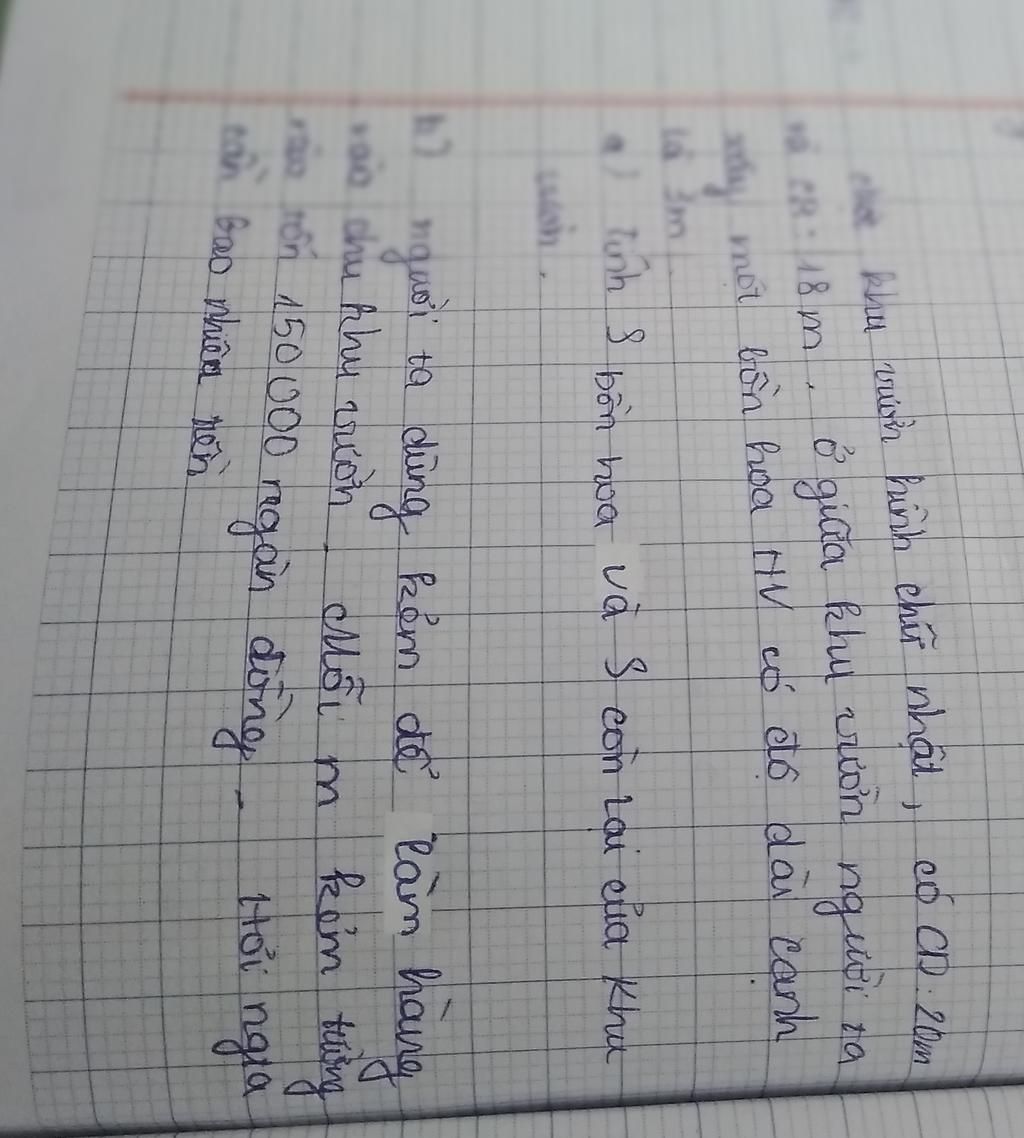 Một khu vườn hình chữ nhật, có CD: 20m
và CR: 18m. Ở giữa khu vườn người ta
xây một bồn hoa HV có độ dài cạnh
là 3m.
a) Tính S bồn hoa và S còn lại của khu
vườn.
b) người ta dùng kẽm để làm hàng
rào chu khu vườn. Mỗi m kẽm tường
rào tốn 150 000 ngàn đồng. Hỏi ngta
cần bao nhiêu tiền